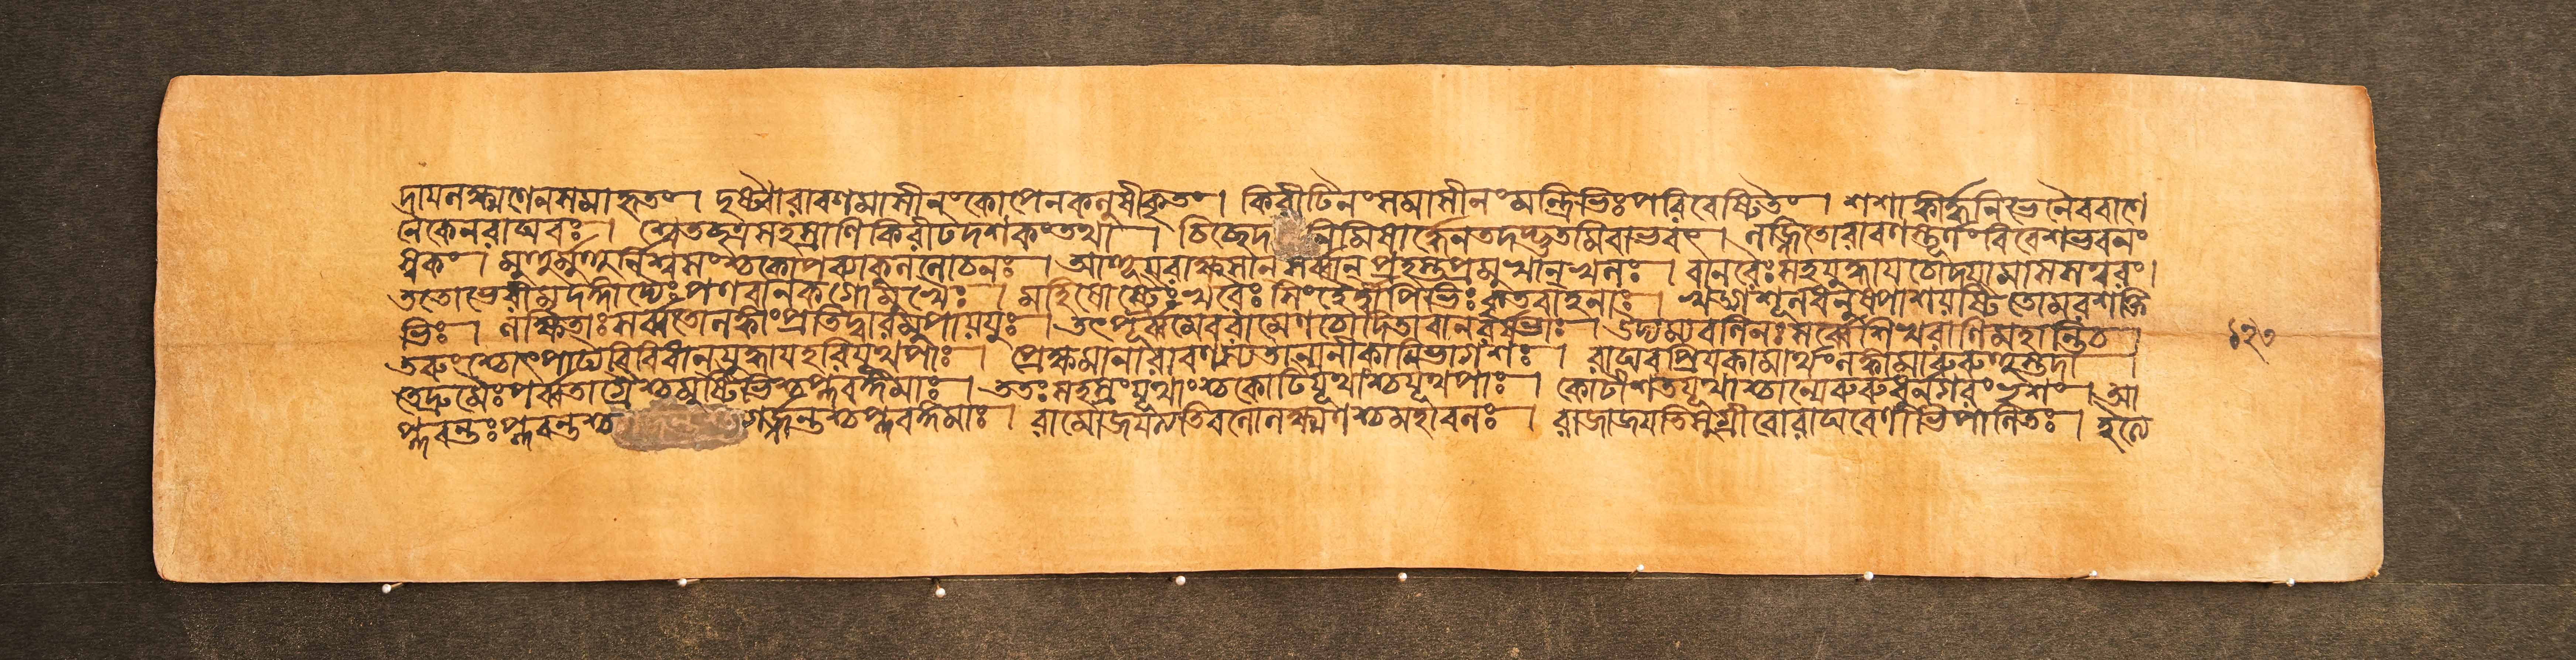 দ্রায়লক্ষ্মণেনসমাহৃতঃ। দৃষ্ট্বারাবণমাসীনংকোপেনকলুষীকৃতঃ। কিরীটিনংসমাসীনংমন্ত্রিভিঃপরিবেষ্টিতং। শশাঙ্কার্দ্ধনিভেনৈববাণে
নৈকেনরাঘবঃ। শ্বেতচ্ছত্রসহস্রাণিকিরীটদশকংতথা। চিচ্ছেদ নিমিষার্দ্ধেনতদদ্ভুতমিবাভবৎ। লজ্জিতোরাবণস্তূর্ণংবিবেশভবনং
স্বকং। আহূয়রাক্ষসান্সর্ব্বান্প্রহস্তপ্রমুখান্খলঃ। বানরৈঃসহযুদ্ধায়চোদয়ামাসসত্বরং।
ততোভেরীমৃদঙ্গাদ্যৈঃপণবানকগোমুখৈঃ। মহিষোষ্ট্রৈঃখরৈঃসিংহৈর্দ্বীপিভিঃকৃতবাহনাঃ। খড়্গশূলধনুঃপাশযষ্টিতোমরশক্তি
ভিঃ। লক্ষিতাঃসর্ব্বতোলঙ্কাংপ্রতিদ্বারমুপাযযুঃ। তৎপূর্ব্বমেবরামেণচোদিতাবানরর্ষভাঃ। উদ্যম্য শিখরাণিমহান্তিচ।
তরূংশ্চোৎপাট্যবিবিধান্যুদ্ধায়হরিযূথপাঃ। প্রেক্ষমাণারাবণস্যতান্যনীকানিভাগশঃ। রাঘবপ্রিয়কামার্থংলঙ্কামারুরুহুস্তদা।
তেদ্রুমৈঃপর্ব্বতাগ্রৈশ্চমুষ্টিভিশ্চপ্লবঙ্গমাঃ। ততঃসহস্রংযূথাংশ্চকোটিযূথাশ্চযূথপাঃ। কোটীশতযূথাশ্চান্যেরুরুধুর্নগরংভৃশং। আ
প্লবন্তঃপ্লবন্তশ্চ গর্জন্তশ্চপ্লবঙ্গমাঃ। রামোজয়ত্যতিবলোলক্ষ্মণশ্চমহাবলঃ। রাজাজয়তিসুগ্রীবোরাঘবেণাভিপালিতঃ। ইত্যে